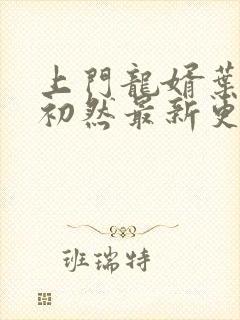 上門龍婿葉
初然最新更
班瑞特